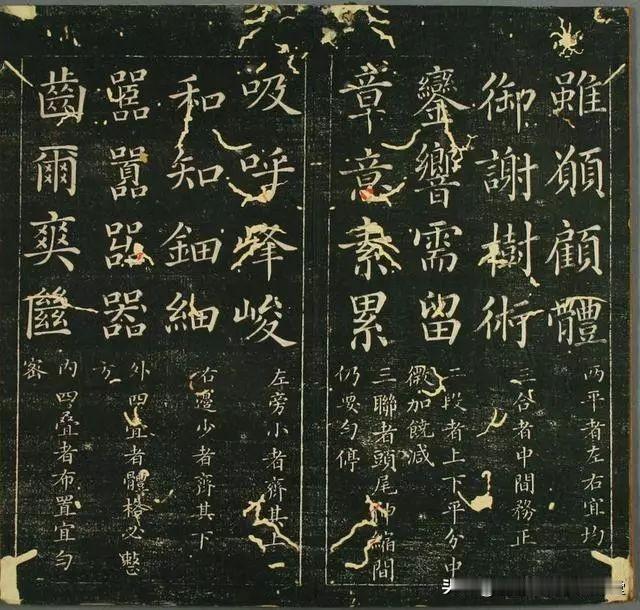 雖願顧體
兩平者左右宜均
御謝樹術
三合者中間務正
鑾響需留
二段者上下平分中
微加饒减
章意素累
三聯者頭尾伸縮間
仍要勻停
吸呼峰峻
左旁小者齊其上
和知鈿細
右邊少者齊其下
囂噐器
外四宜者體格必整
方
齒爾爽
內四疊者布置宜勻
密